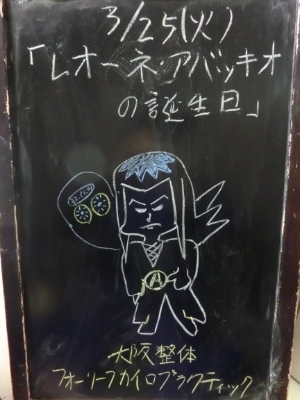 3/25(火)
「レオーネ・アバッキオ
の誕生日」
A
大阪整体
フォーリーフカイロプラクティック